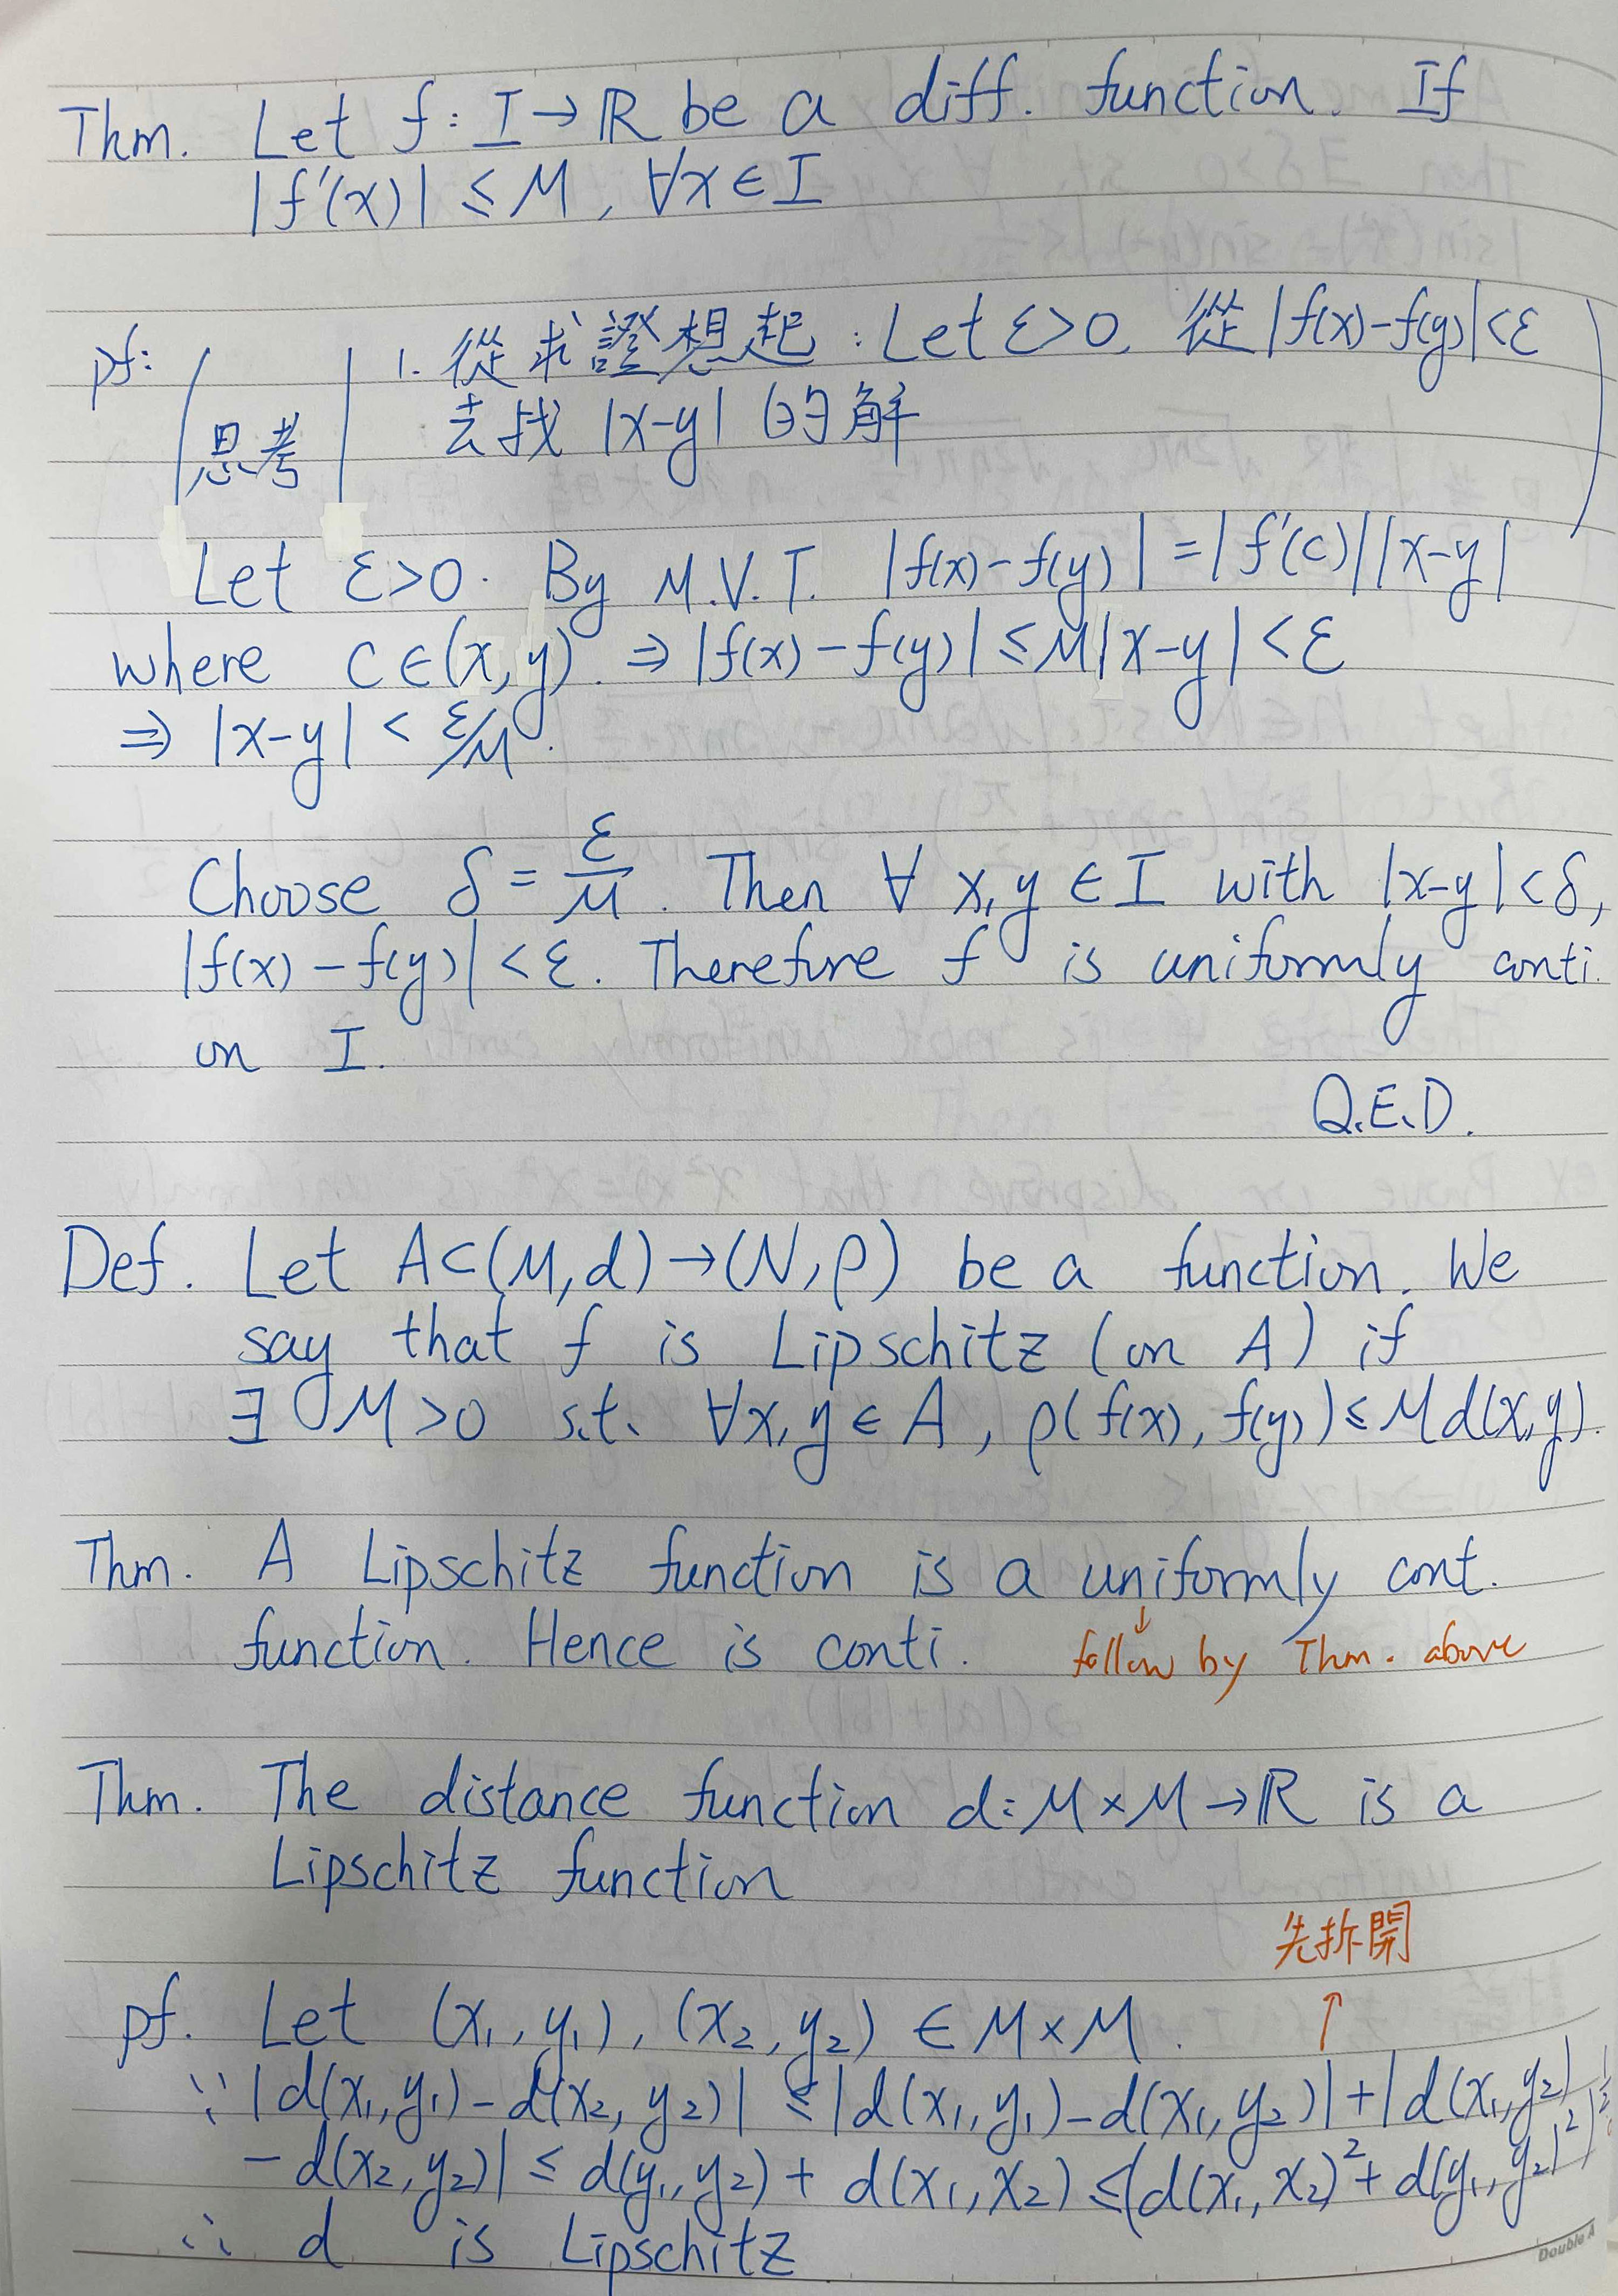 Thm. Let f: I→ℝ be a diff. function. If
|f'(x)| ≤ M, ∀x∈I
pf: (思考| 1. 從求證想起: Let ε>0, 從|f(x)-f(y)|<ε
去找 |x-y| 的解)
Let ε>0. By M.V.T. |f(x)-f(y)|=|f'(c)||x-y|
where c∈(x,y). ⇒ |f(x)-f(y)| ≤ M|x-y| < ε
⇒ |x-y| < ε/M.
Choose δ = ε/M. Then ∀ x,y ∈ I with |x-y|<δ,
|f(x)-f(y)|<ε. Therefore f is uniformly conti.
on I.
Q.E.D.
Def. Let A⊂(M,d)→(N,ρ) be a function. We
say that f is Lipschitz (on A) if
∃ M>0 s.t. ∀x,y∈A, ρ(f(x),f(y))≤Md(x,y).
Thm. A Lipschitz function is a uniformly cont.
function. Hence is conti. ↓ follow by Thm. above
Thm. The distance function d: M×M→ℝ is a
Lipschitz function
先拆開
↑
pf. Let (x₁,y₁), (x₂,y₂) ∈ M×M.
∵ |d(x₁,y₁)-d(x₂,y₂)| ≤ |d(x₁,y₁)-d(x₁,y₂)|+|d(x₁,y₂)
-d(x₂,y₂)| ≤ d(y₁,y₂)+d(x₁,x₂) ≤ (d(x₁,x₂)²+d(y₁,y₂)²)^½
∴ d is Lipschitz
Double A